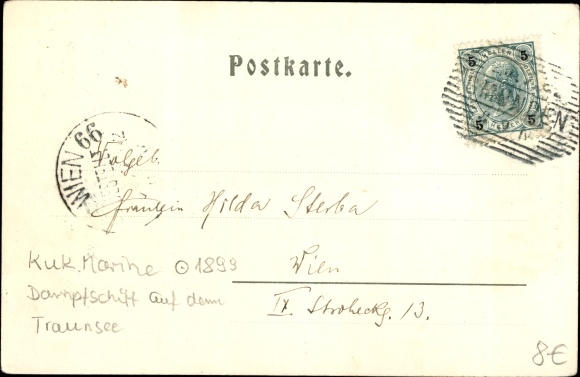 Postkarte.
5 5
5 5
WIEN 66
Fräulein Hilda Sterba
Wien
IX.
13.
KuK. Marine 1899
Dampfschift auf dem
Traunsee
8€